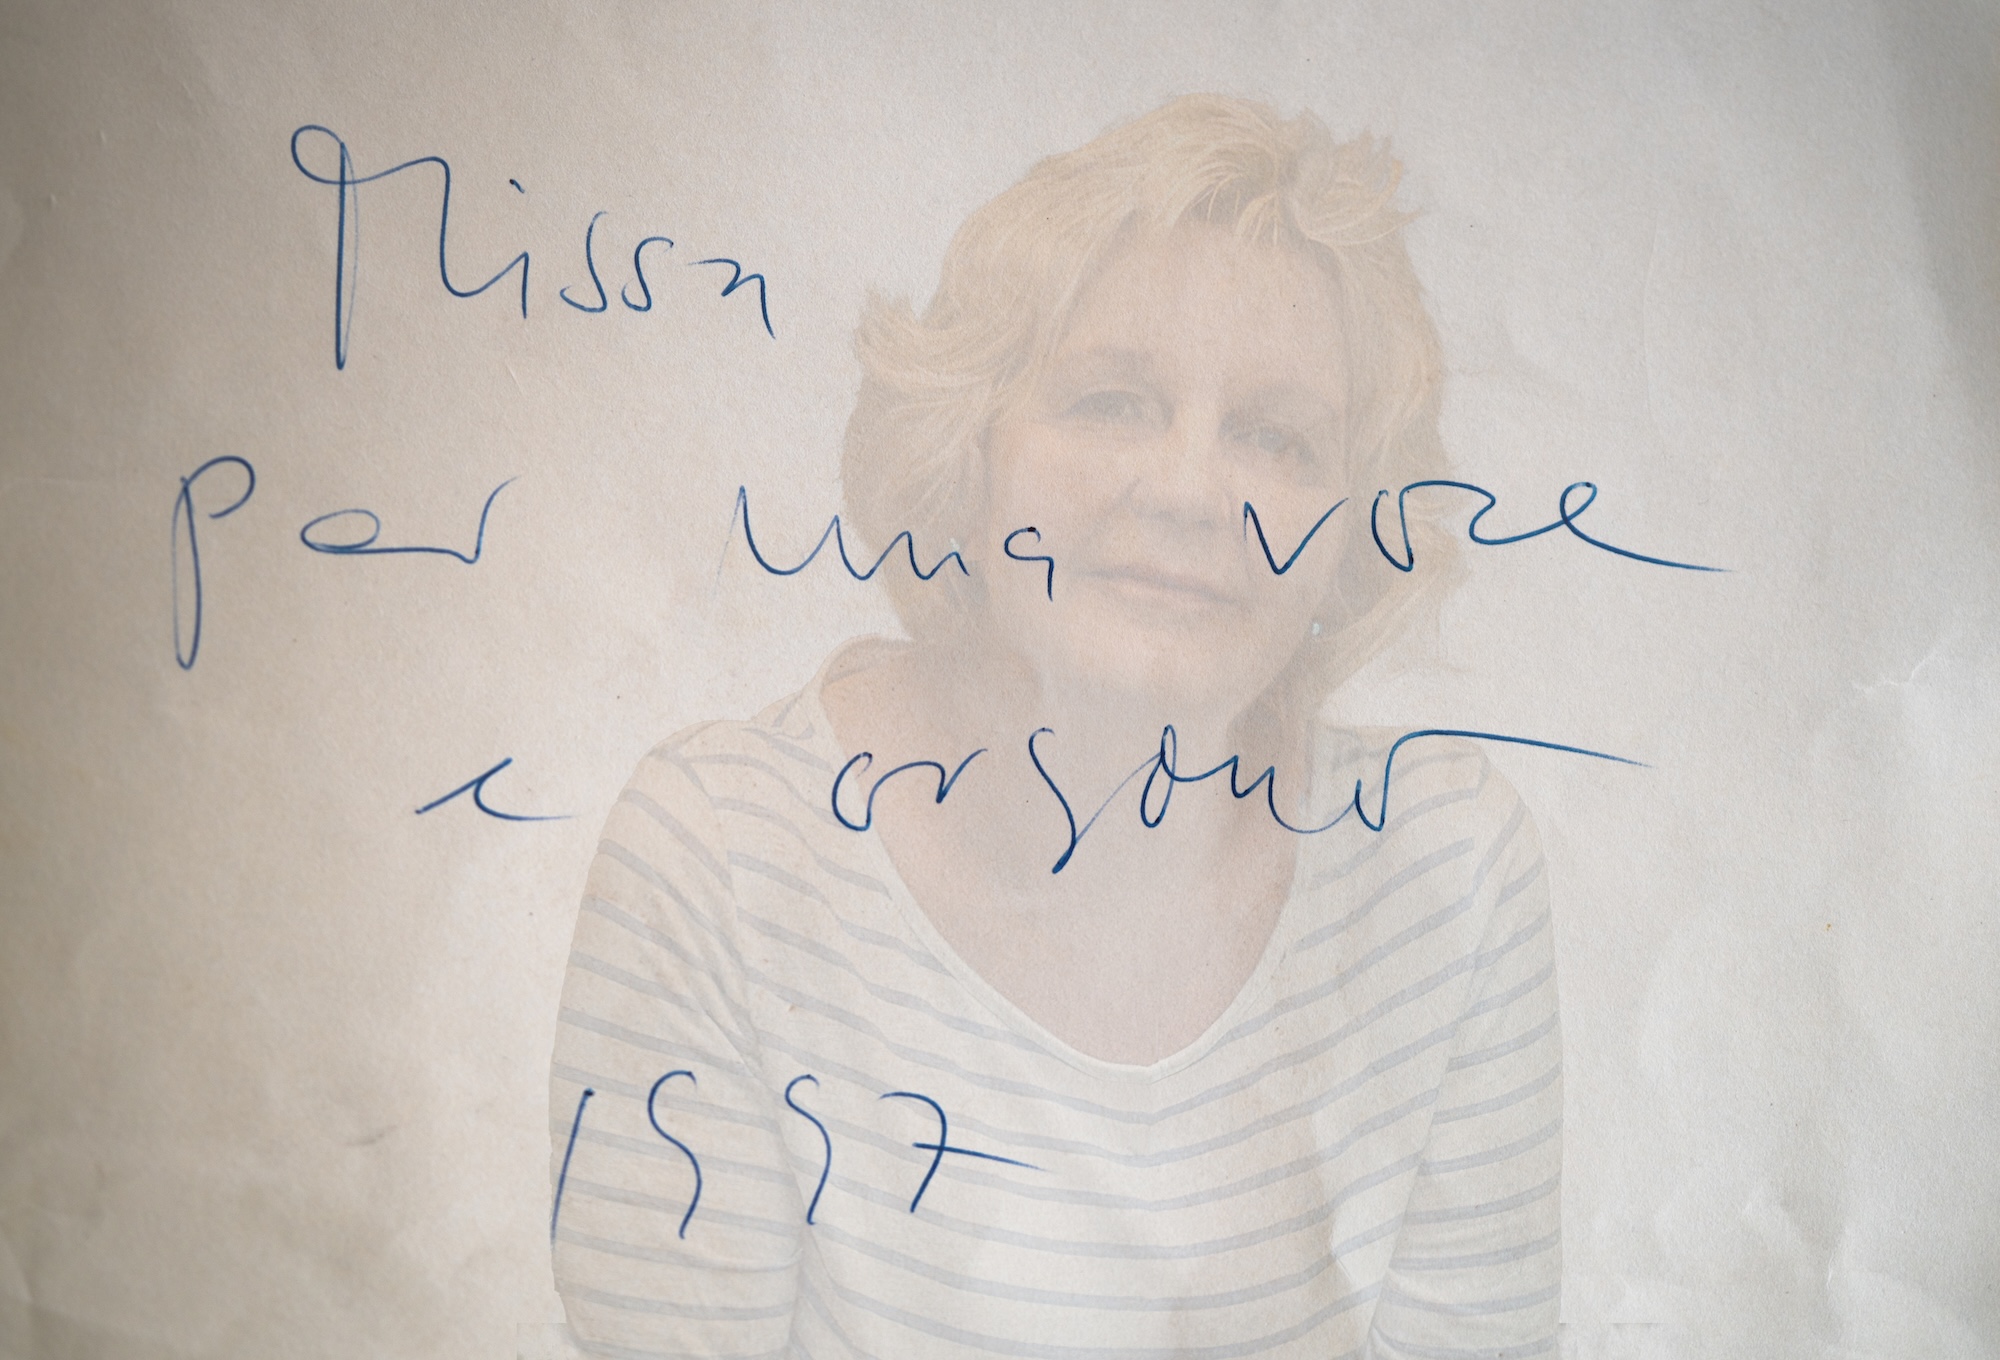 Missa
per una voce
e organo
1997